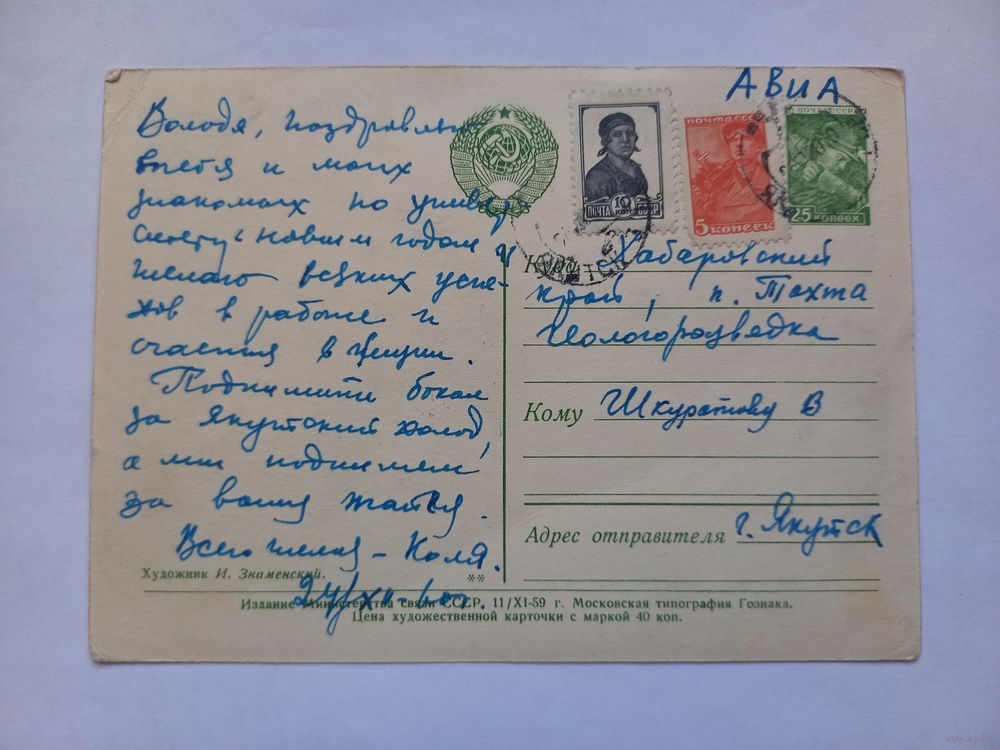 АВИА
Володя, поздравляю
тебя и моих
знакомых по универ-
ситету с новым годом и
желаю всяких успе-
хов в работе и
счастья в жизни.
Поднимите бокал
за Якутский холод,
а мы поднимем
за ваше
Всего желая - Коля.
24/XII-60г.
ПОЧТА СССР
10 коп.
ПОЧТА СССР
5 копеек
ПОЧТА СССР
25 копеек
Куда Хабаровский
край, п. Тахта
Геологоразведка
Кому Шкуратову В
Адрес отправителя г. Якутск
Художник И. Знаменский.
**
Издание Министерства связи СССР. 11/XI-59 г. Московская типография Гознака.
Цена художественной карточки с маркой 40 коп.